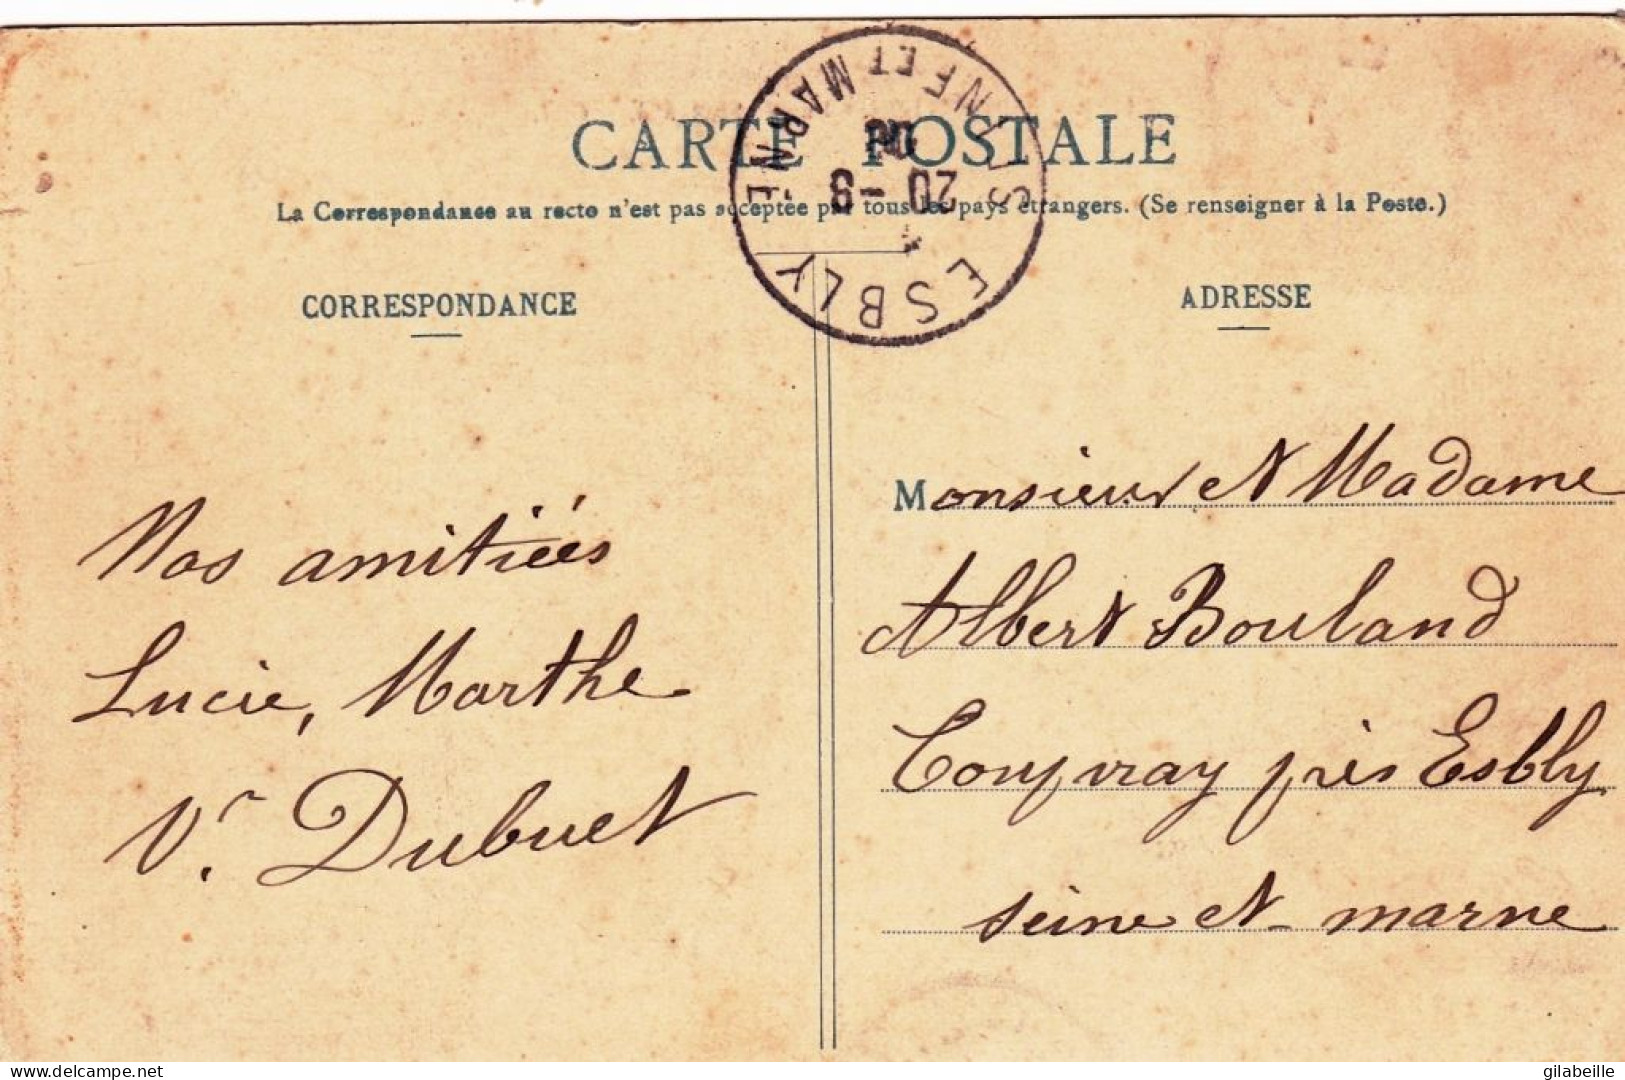 CARTE POSTALE
La Correspondance au recto n'est pas acceptée par tous les pays étrangers. (Se renseigner à la Poste.)
ESBLY
SEINE ET MARNE
20 - 9
CORRESPONDANCE
Nos amitiées
Lucie, Marthe
Vr. Dubuet
ADRESSE
Monsieur et Madame
Albert Bouland
Coupvray près Esbly
seine et marne
delcampe.net
gilabeille